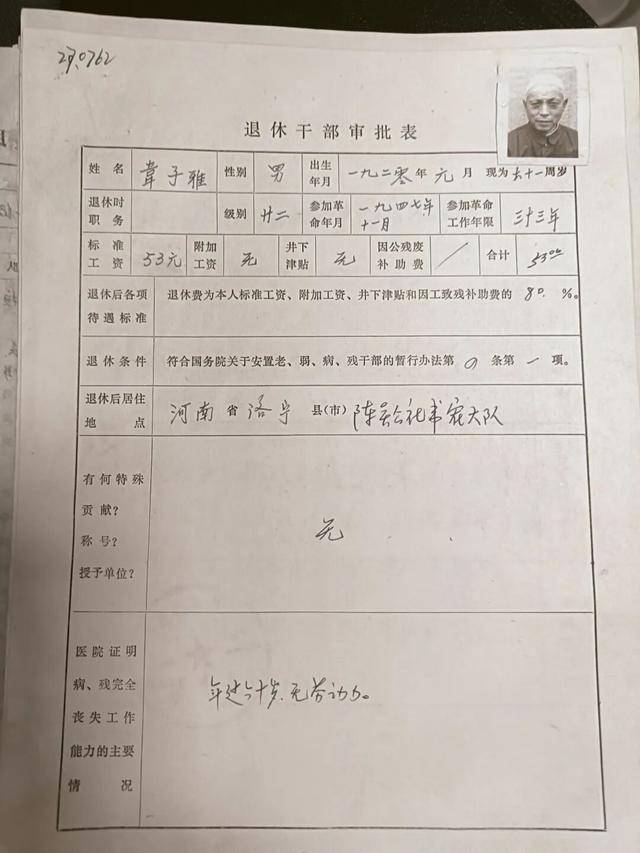 270762
退休干部审批表
姓名 韋子雅 性别 男 出生年月 一九二零年元月 现为六十一周岁
退休时职务 级别 廿二 参加革命年月 一九四七年十一月 参加革命工作年限 三十三年
标准工资 53元 附加工资 无 井下津贴 无 因公残废补助费 / 合计 53.00
退休后各项待遇标准 退休费为本人标准工资、附加工资、井下津贴和因工致残补助费的80%。
退休条件 符合国务院关于安置老、弱、病、残干部的暂行办法第 条第一项。
退休后居住地点 河南省洛宁县(市)陈吴公社 大队
有何特殊贡献?
称号?
授予单位?
无
医院证明病、残完全丧失工作能力的主要情况
年过六十岁、无劳动力。